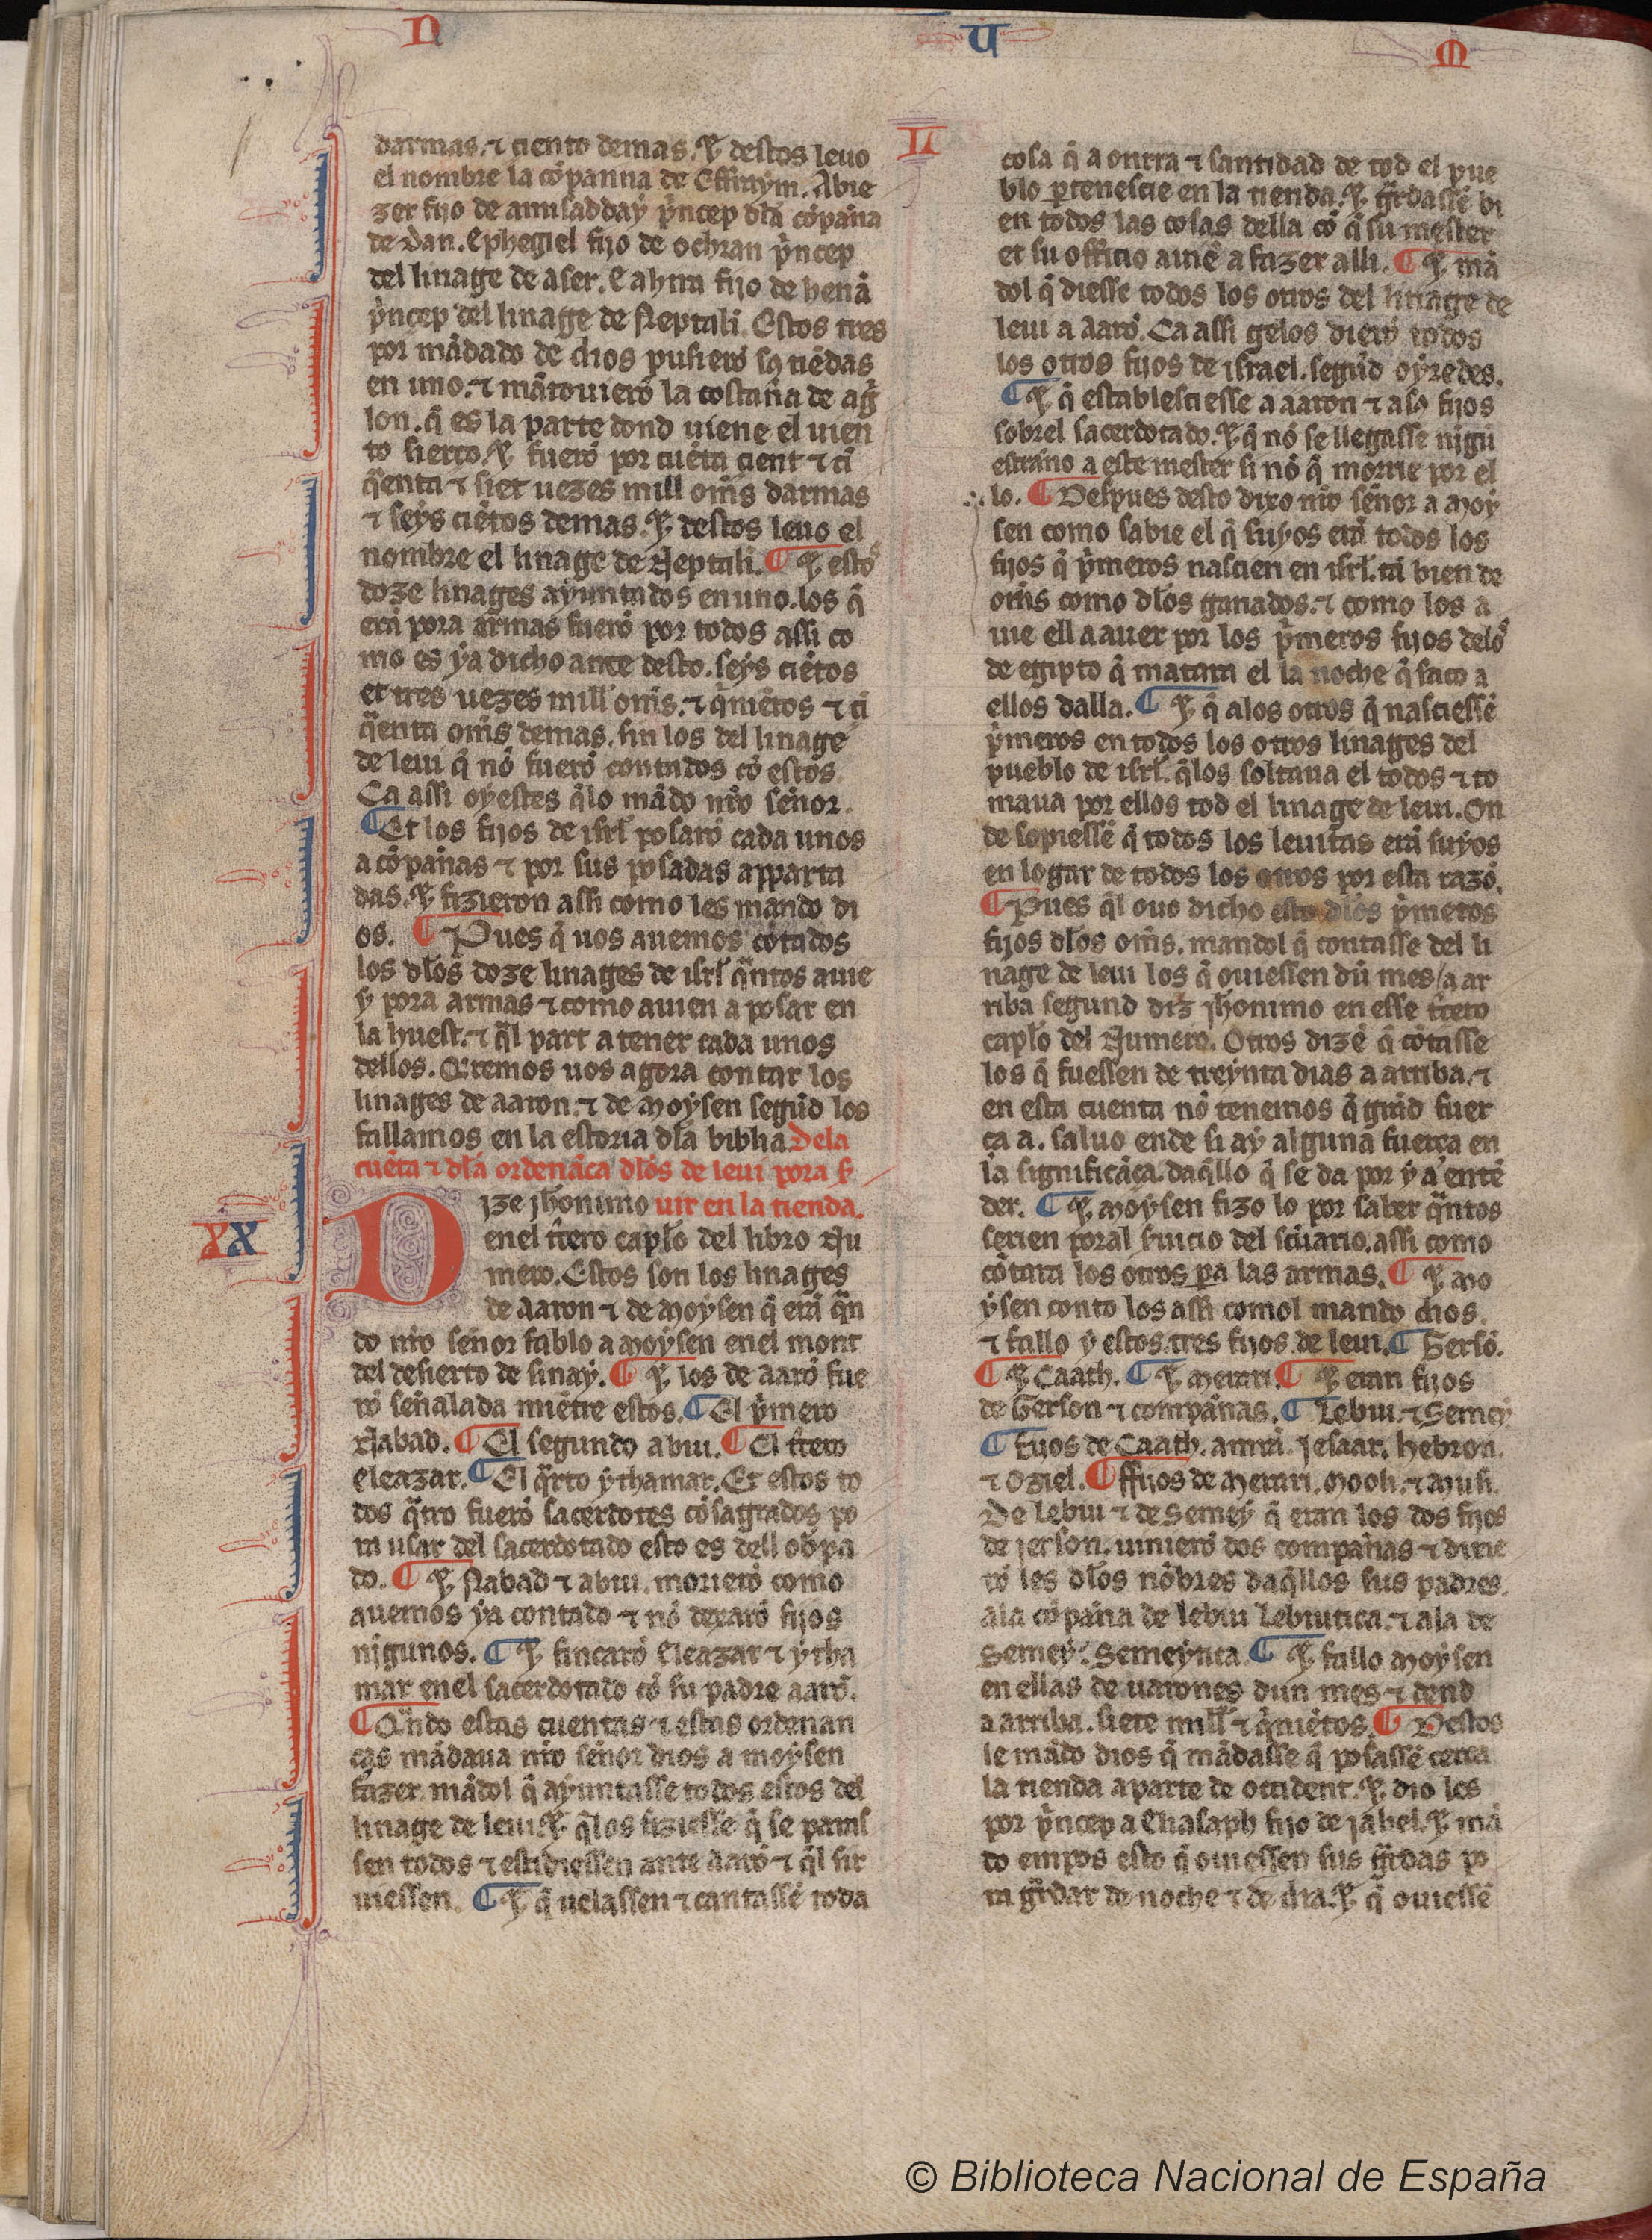 N U M
L
darmas. ⁊ ciento demas. Et destos leuo
el nombre la cõpanna de Effraym. Abie
zer fijo de amisadday p̃ncep dl̃a cõpãna
de Dan. Ephegiel fijo de ochran p̃ncep
del linage de aser. E ahyra fijo de henã
p̃ncep del linage de Neptali. Estos tres
por mãdado de dios pusierõ sꝯ tiẽdas
en uno. ⁊ mãtouierõ la costãna de ag̃
lon. q̃ es la parte dond uiene el uien
to cierço. Et fuerõ por cuẽta cient ⁊ cĩ
q̃enta ⁊ siet uezes mill om̃s darmas
⁊ seys ciẽtos demas. Et destos leuo el
nombre el linage de Neptali. ¶ Et estos
doze linages ayuntados en uno. los q̃
erã pora armas fuerõ por todos assi co
mo es ya dicho ante desto. seys ciẽtos
et tres uezes mill om̃s. ⁊ q̃niẽtos ⁊ cĩ
q̃enta om̃s demas. sin los del linage
de leui q̃ nõ fuerõ contados cõ estos.
Ca assi oyestes q̃lo mãdo nr̃o sẽnor.
¶ Et los fijos de isrl̃ posarõ cada unos
a cõpãnas ⁊ por sus posadas apparta
das. Et fizieron assi como les mando di
os. ¶ Pues q̃ uos auemos cõtados
los dl̃os doze linages de isrl̃ q̃ntos auie
y pora armas ⁊ como auien a posar en
la huest. ⁊ q̃l part a tener cada unos
dellos. Q̃remos uos agora contar los
linages de aaron. ⁊ de Moysen segũd los
fallamos en la estoria dl̃a biblia. Dela
cuẽta ⁊ dl̃a ordenãça dl̃os de leui pora s̃
XX
Dize jh̃onimo uir en la tienda.
enel t̃cero capl̃o del libro Nu
mero. Estos son los linages
de Aaron ⁊ de Moysen q̃ erã q̃n
do nr̃o sẽnor fablo a Moysen enel mont
del desierto de sinay. ¶ Et los de aarõ fue
rõ sẽnalada miẽtre estos. ¶ El p̃mero
Nabad. ¶ El segundo abiu. ¶ El t̃cero
eleazar. ¶ El q̃rto ythamar. Et estos to
dos q̃tro fuerõ sacerdotes cõsagrados po
ra usar del sacerdotado esto es dell ob̃pa
do. ¶ Et Nabad ⁊ abiu. morierõ como
auemos ya contado ⁊ nõ dexarõ fijos
nigunos. ¶ Et fincarõ Eleazar ⁊ ytha
mar enel sacerdotado cõ su padre aarõ.
¶ Q̃ndo estas cuentas ⁊ estas ordenan
ças mãdaua nr̃o sẽnor dios a moysen
fazer. mãdol q̃ ayuntasse todos estos del
linage de leui. Et q̃los fiziesse q̃ se paras
sen todos ⁊ estidiessen ante aarõ ⁊ q̃l sir
uiessen. ¶ Et q̃ uelassen ⁊ cantassẽ toda
cosa q̃ a onrra ⁊ santidad de tod el pue
blo ꝑtenescie en la tienda. Et g̃rdassẽ bi
en todos las cosas della cõ q̃ su mester
et su officio auiẽ a fazer alli. ¶ Et mã
dol q̃ diesse todos los otros del linage de
leui a Aarõ. Ca assi gelos dierõ todos
los otros fijos de israel. segũd oyredes.
¶ Et q̃ establesciesse a aaron ⁊ a sꝯ fijos
sobrel sacerdotado. Et q̃ nõ se llegasse nigũ
estrãno a este mester si nõ q̃ morrie por el
lo. ¶ Despues desto dixo nr̃o sẽnor a Moy
sen como sabie el q̃ suyos erã todos los
fijos q̃ p̃meros nascien en isrl̃. tã bien de
om̃s como dl̃os ganados. ⁊ como los a
uie ell a auer por los p̃meros fijos delos
de egipto q̃ matara el la noche q̃ saco a
ellos dalla. ¶ Et q̃ alos otros q̃ nasciessẽ
p̃meros en todos los otros linages del
pueblo de isrl̃. q̃los soltaua el todos ⁊ to
maua por ellos tod el linage de leui. On
de sopiessẽ q̃ todos los leuitas erã suyos
en logar de todos los otros por esta razõ.
¶ Pues q̃l ouo dicho esto dl̃os p̃meros
fijos dl̃os om̃s. mandol q̃ contasse del li
nage de leui los q̃ ouiessen dũ mes / a ar
riba segund diz jh̃onimo en esse t̃cero
capl̃o del Numero. Otros dizẽ q̃ cõtasse
los q̃ fuessen de treynta dias a arriba. ⁊
en esta cuenta nõ tenemos q̃ grãd fuer
ça a. saluo ende si ay alguna fuerça en
la significãça. daq̃llo q̃ se da por y a entẽ
der. ¶ Et Moysen fizo lo por saber q̃ntos
serien poral s̃uicio del sc̃uario. assi como
cõtara los otros ꝑa las armas. ¶ Et Mo
ysen conto los assi comol mando dios.
⁊ fallo y estos. tres fijos de leui. ¶ Gersõ.
¶ Et Caath. ¶ Et Merari. ¶ Et eran fijos
de Gerson ⁊ compãnas. ¶ Lebiu. ⁊ Semey
¶ Fijos de Caath. amrã. Jesaar. hebron.
⁊ Oziel. ¶ ffijos de Merari. Mooli. ⁊ Musi.
De Lebiu ⁊ de Semey q̃ eran los dos fijos
de jerson. uinierõ dos compãnas ⁊ dixie
rõ les dl̃os nõbres daq̃llos sus padres.
ala cõpãna de lebiu Lebiutica. ⁊ ala de
Semey. Semeyita. ¶ Et fallo Moysen
en ellas de uarones dun mes ⁊ dend
a arriba. siete mill ⁊ q̃niẽtos. ¶ Destos
le mãdo dios q̃ mãdasse q̃ posassẽ cerca
la tienda a parte de occident. Et dio les
por p̃ncep a Eliasaph fijo de jahel. Et mã
do empos esto q̃ ouiessen sus g̃rdas po
ra g̃rdar de noche ⁊ de dia. Et q̃ ouiessẽ
© Biblioteca Nacional de España